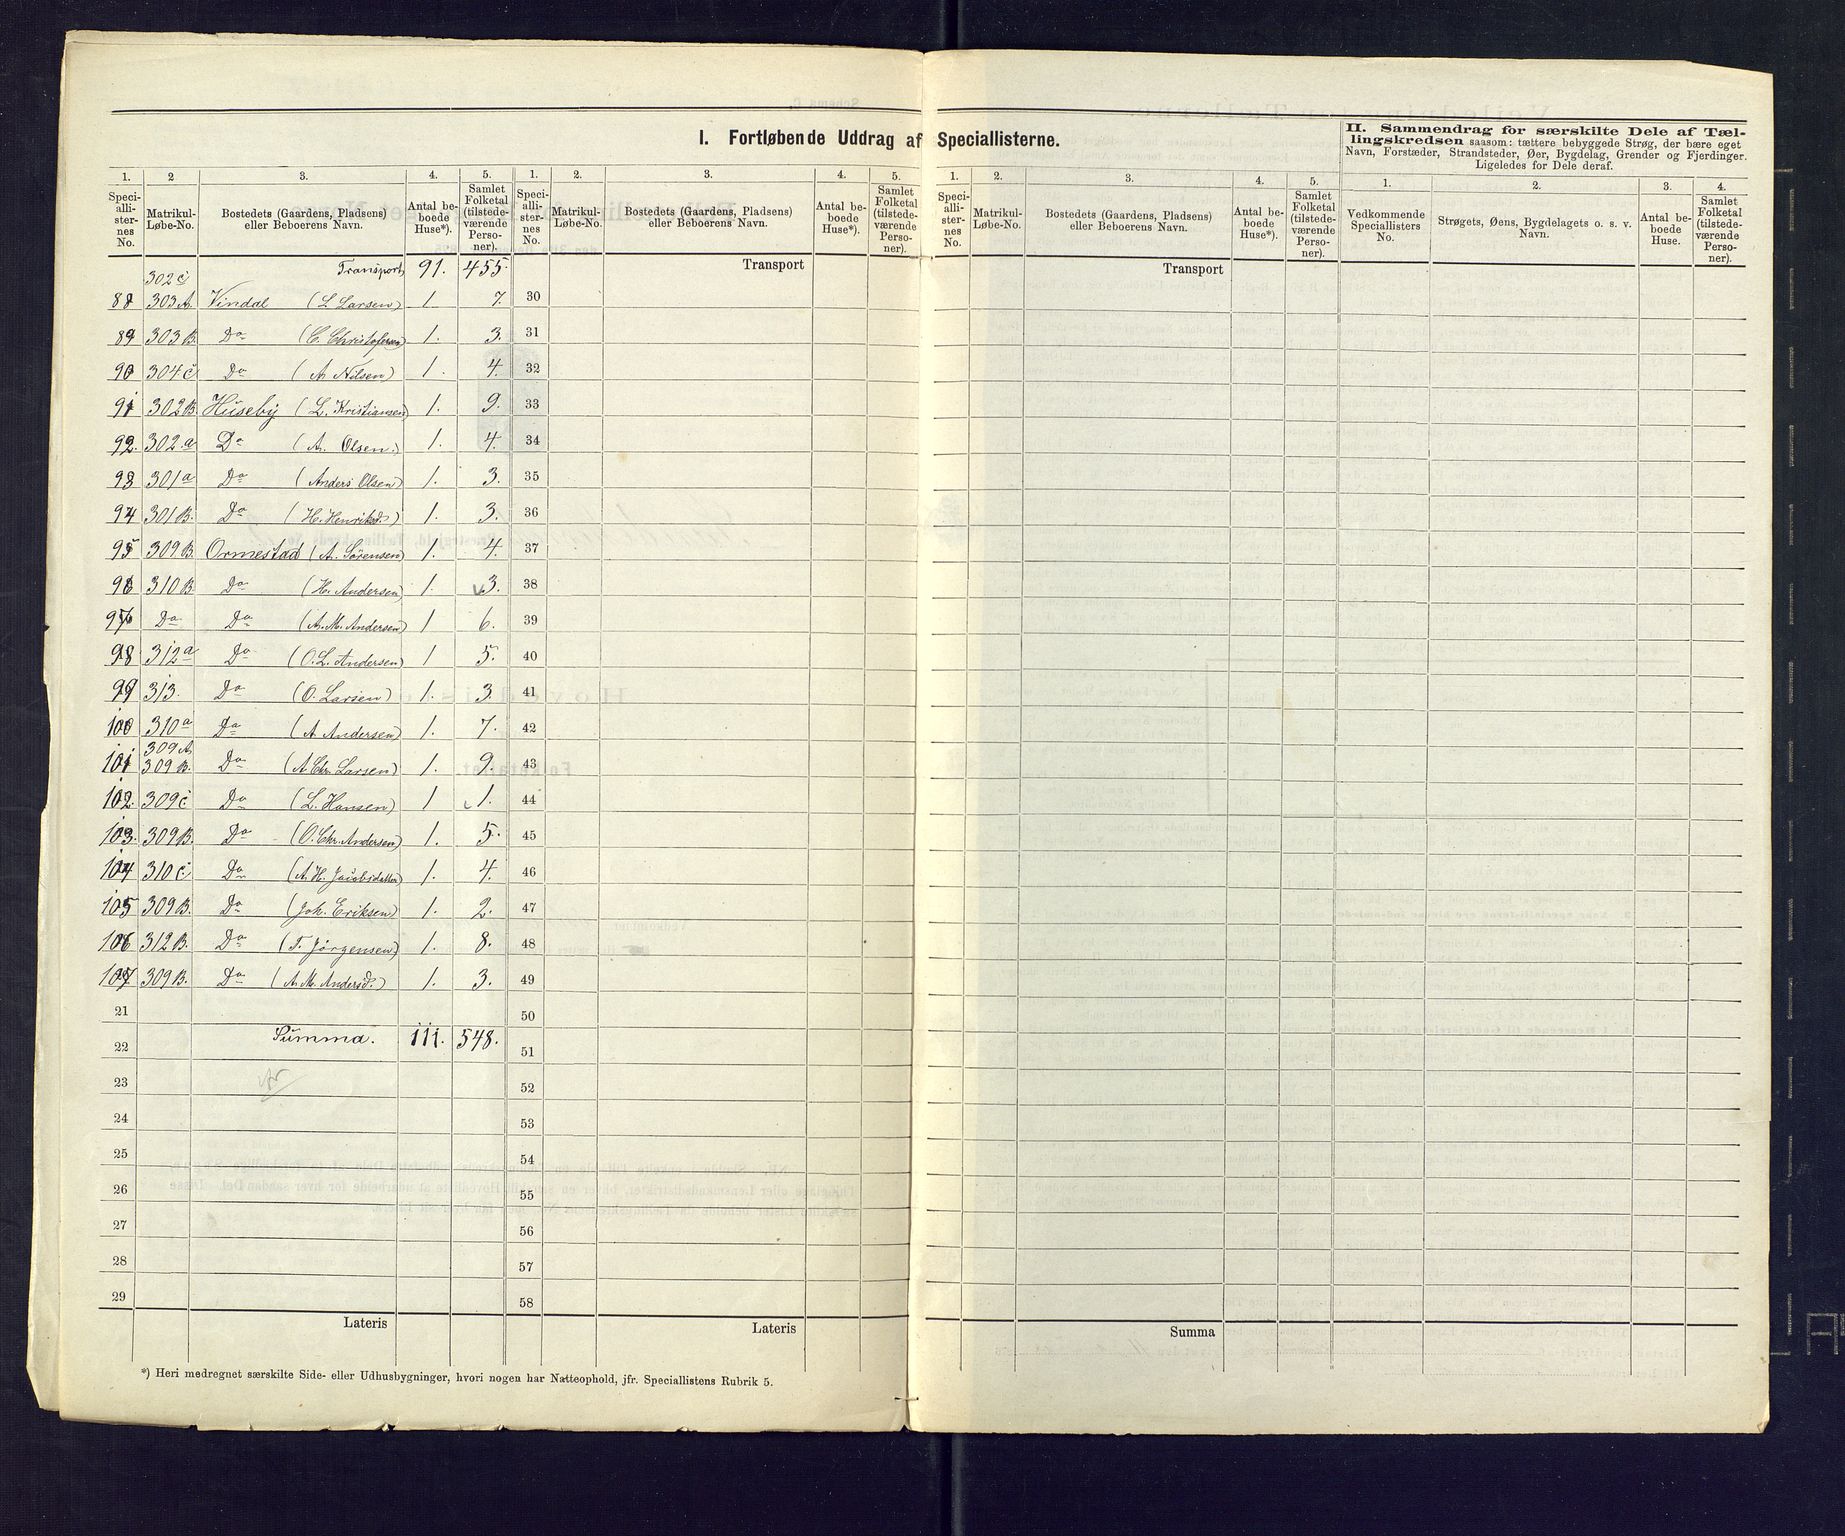 I. Fortløbende Uddrag af Speciallisterne.
II. Sammendrag for særskilte Dele af Tæl-
lingskredsen saasom: tættere bebyggede Strøg, der bære eget
Navn, Forstæder, Strandsteder, Øer, Bygdelag, Grender og Fjerdinger.
Ligeledes for Dele deraf.
1. 2 3. 4. 5. 1. 2. 3. 4. 5. 1. 2. 3. 4. 5. 1. 2. 3. 4.
Speci-allister-nes No. Matrikul-Løbe-No. Bostedets (Gaardens, Pladsens) eller Beboerens Navn. Antal be-boede Huse*). Samlet Folketal (tilstede-værende Perso-ner).
Speci-allister-nes No. Matrikul-Løbe-No. Bostedets (Gaardens, Pladsens) eller Beboerens Navn. Antal be-boede Huse*). Samlet Folketal (tilstede-værende Perso-ner).
Speci-allister-nes No. Matrikul-Løbe-No. Bostedets (Gaardens, Pladsens) eller Beboerens Navn. Antal be-boede Huse*). Samlet Folketal (tilstede-værende Perso-ner).
Vedkommende Speciallisters No. Strøgets, Øens, Bygdelagets o. s. v. Navn. Antal be-boede Huse. Samlet Folketal (tilstede-værende Perso-ner).
Transport 91. 455. Transport Transport
302c
88 303A. Vindal (L Larsen) 1 7. 30
89 303B. Do (C. Christofersen) 1. 3. 31
90 304c Do (A. Nilsen) 1. 4. 32
91 302B. Huseby (L. Kristiansen) 1. 9. 33
92. 302.a Do (A. Olsen.) 1. 4. 34
93 301a Do (Anders Olsen) 1. 3. 35
94 301B. Do (H. Henriksd.) 1. 3. 36
95 309B. Ormestad (A. Sørensen) 1. 4. 37
96 310B Do (H. Andersen) 1. 3. 38
97 Do Do (A. M. Andersen) 1 6. 39
98 312a Do (O. L. Andersen) 1 5. 40
99 313. Do (O. Larsen) 1. 3. 41
100 310a Do (A. Andersen) 1. 7. 42
309A.
101 309B. Do (A. Chr. Larsen) 1. 9. 43
102. 309c Do (L. Hansen) 1 1. 44
103. 309B. Do (O. Chr. Andersen) 1. 5. 45
104 310c Do (A. H. Jacobsdatter) 1. 4. 46
105 309B. Do (Joh. Eriksen) 1. 2. 47
106 312B. Do (T. Jørgensen) 1. 8. 48
107 309B. Do (A. M. Andersd.) 1. 3. 49
21 50
Summa. 111. 548.
22 51
23 52
24 53
25 54
26 55
27 56
28 57
29 58
Lateris Lateris Summa
*) Heri medregnet særskilte Side- eller Udhusbygninger, hvori nogen har Natteophold, jfr. Speciallistens Rubrik 5.